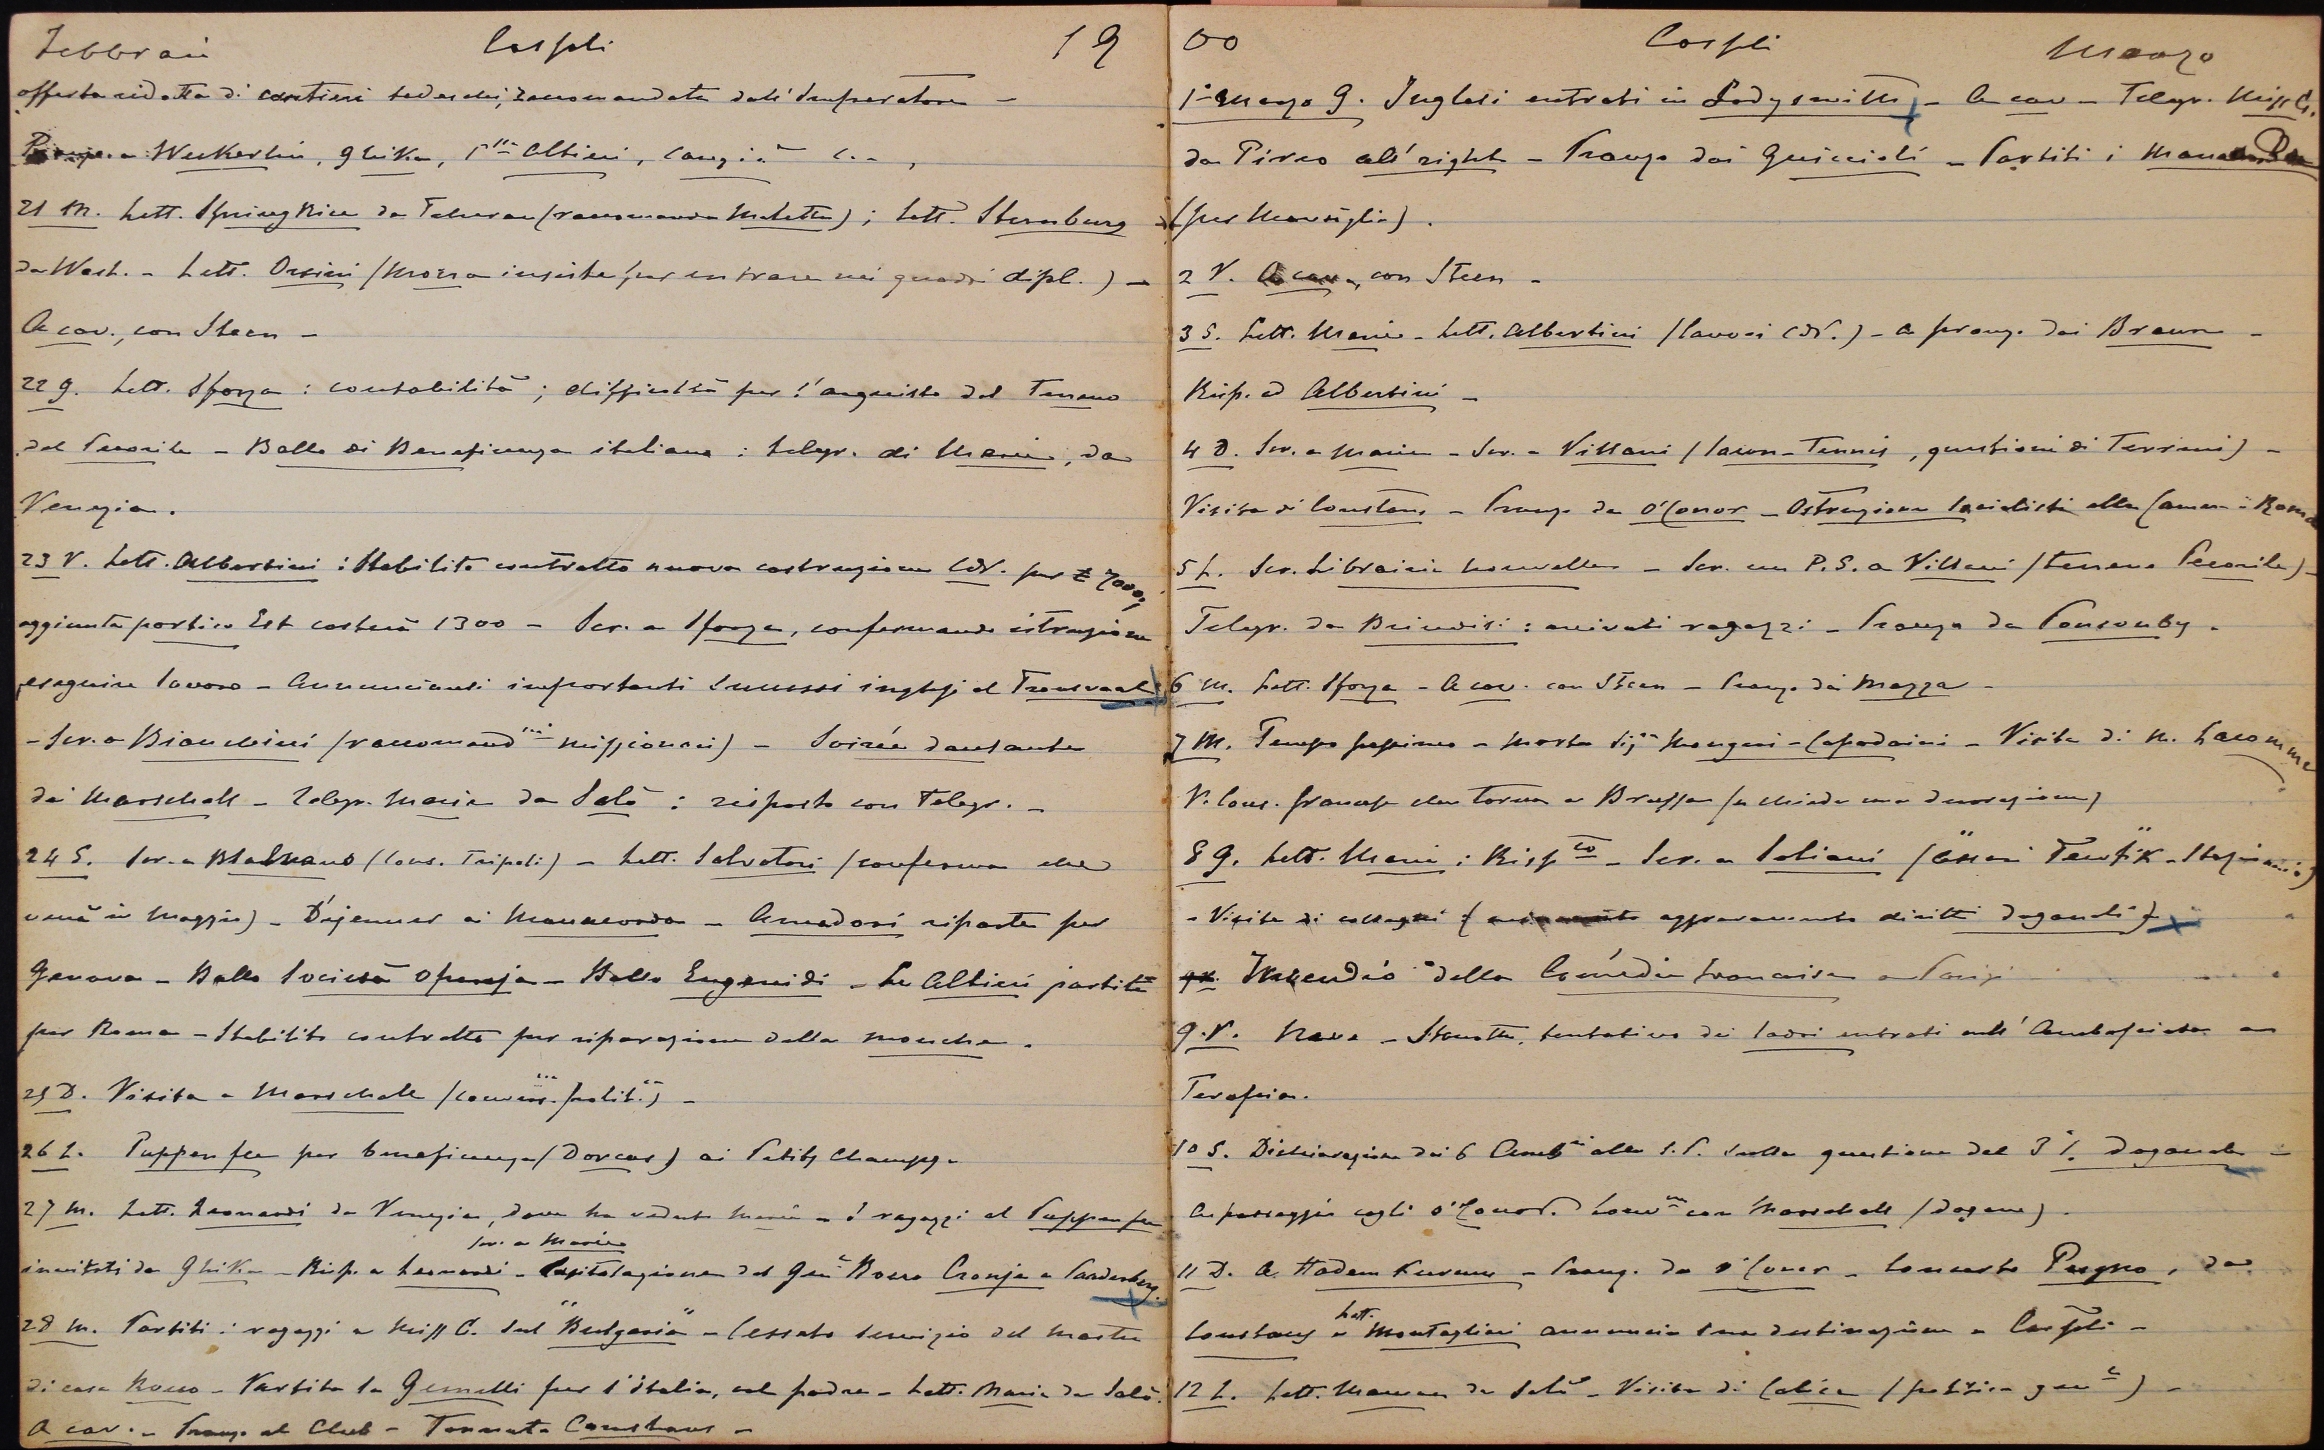 Febbraio Cospoli 19
offerta ridotta di cantieri tedeschi, raccomandata dall'Imperatore -
Pranzo a Weckerlin, Ghika, Altieri, Cangià
21 M. Lett. Spring Rice da Teheran (raccomanda Maletta); lett. Sternburg
da Wash. - Lett. Orsini (Mozza insiste per entrare nei quadri dipl.) -
A cav., con Steen -
22 G. Lett. Sforza: contabilità; difficoltà per l'acquisto del Terreno
del Pecorile - Ballo di Beneficenza italiana: telegr. di Maria, da
Venezia.
23 V. Lett. Albertini: Stabilito contratto nuova costruzione CdV. per £ 7000;
aggiunta portico Est costerà 1300 - Scr. a Sforza, confermando istruzione
eseguire lavoro - Annunciansi importanti successi inglesi al Transvaal
- Scr. a Bianchini (raccomand.ni missionari) - Soirée dansante
dai Marschall - Telegr. Maria da Salò: risposto con Telegr. -
24 S. Scr. a (Cons. Tripoli) - Lett. Salvatori (conferma che
verrà in Maggio) - Déjeuner ai Maucorda - Amadori riparte per
Genova - Ballo Società Operaja - Ballo Eugenidi - Le Altieri partite
per Roma - Stabilito contratto per riparazione della mouche.
25 D. Visita a Marschall (convers. polit.) -
26 L. Puppenfee per beneficenza (Dorcas) ai Petits Champs.
27 M. Lett. Leonardi da Venezia, dove ha veduto Maria - I ragazzi al Puppenfee
scr. a Maria
invitati da Ghika - Risp. a Leonardi - Capitolazione del Gen.e Boero Cronje a Paardenberg.
28 M. Partiti i ragazzi e Miss C. sul "Bulgaria" - Cessato servizio del mastro
di casa Rosso - Partita la Gemelli per l'Italia, col padre - Lett. Maria da Salò.
A cav. - Pranzo al Club - Tornata Constans -
00 Cospoli Marzo
1° Marzo G. Inglesi entrati in Ladysmith - A cav - Telegr. Miss C.
da Pireo all'right - Pranzo dai Guiccioli - Partiti i
(per Marsiglia).
2 V. A cav., con Steen -
3 S. Lett. Maria - Lett. Albertini (lavori CdV.) - A pranzo dai Braun -
Risp. ad Albertini -
4 D. Scr. a Maria - Scr. a Villani (lawn-Tennis, questioni di Terreni) -
Visita di Constans - Pranzo da O'Conor - Ostruzione socialista alla Camera a Roma
5 L. Scr. Librairie nouvelle - Scr. un P.S. a Villani (terreno Pecorile) -
Telegr. da Brindisi: arrivati ragazzi - Pranzo da Ponsonby.
6 M. Lett. Sforza - A cav. con Steen - Pranzo dai Mazza -
7 M. Tempo pessimo - Morta Sig.ra Mongeri-Capadaini - Visita di M. Lacomme
V. Cons. francese che torna a Brussa (e chiede una decorazione)
8 G. Lett. Maria: Risp.to - Scr. a Soliani ("Assari Tewfik" - Stefanini)
- Visita di colleghi ( aggravamento diritti doganali)
Incendio della Comédie française a Parigi
9. V. Neve - Stanotte, tentativo dei ladri entrati nell'Ambasciata a
Terapia.
10 S. Dichiarazione dei 6 Amb.ri alla S.P. sulla questione del 3 % doganale -
A passeggio cogli O'Conor. Conv.ne con Marschall (dogane).
11 D. A Hadem Kureuy - Pranzo da O'Conor - Concerto Pugno, da
Constans - lett. Montagliari annuncia sua destinazione a Cospoli -
12 L. Lett. Maman da Salò - Visita di Calice (politica gen.e) -